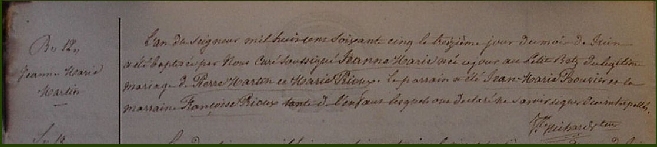 B. 12.
Jeanne Marie
Martin
L'an du Seigneur mil huit cent soixante cinq le treizième jour du mois de Juin
a été baptisée par Nous Curé soussigné Jeanne Marie née ce jour au du légitime
mariage de Pierre Martin et Marie Rioux. Le parrain a été Jean-Marie et la
marraine Françoise Rioux tante de l'enfant lesquels ont déclaré ne savoir signer de ce interpellés.